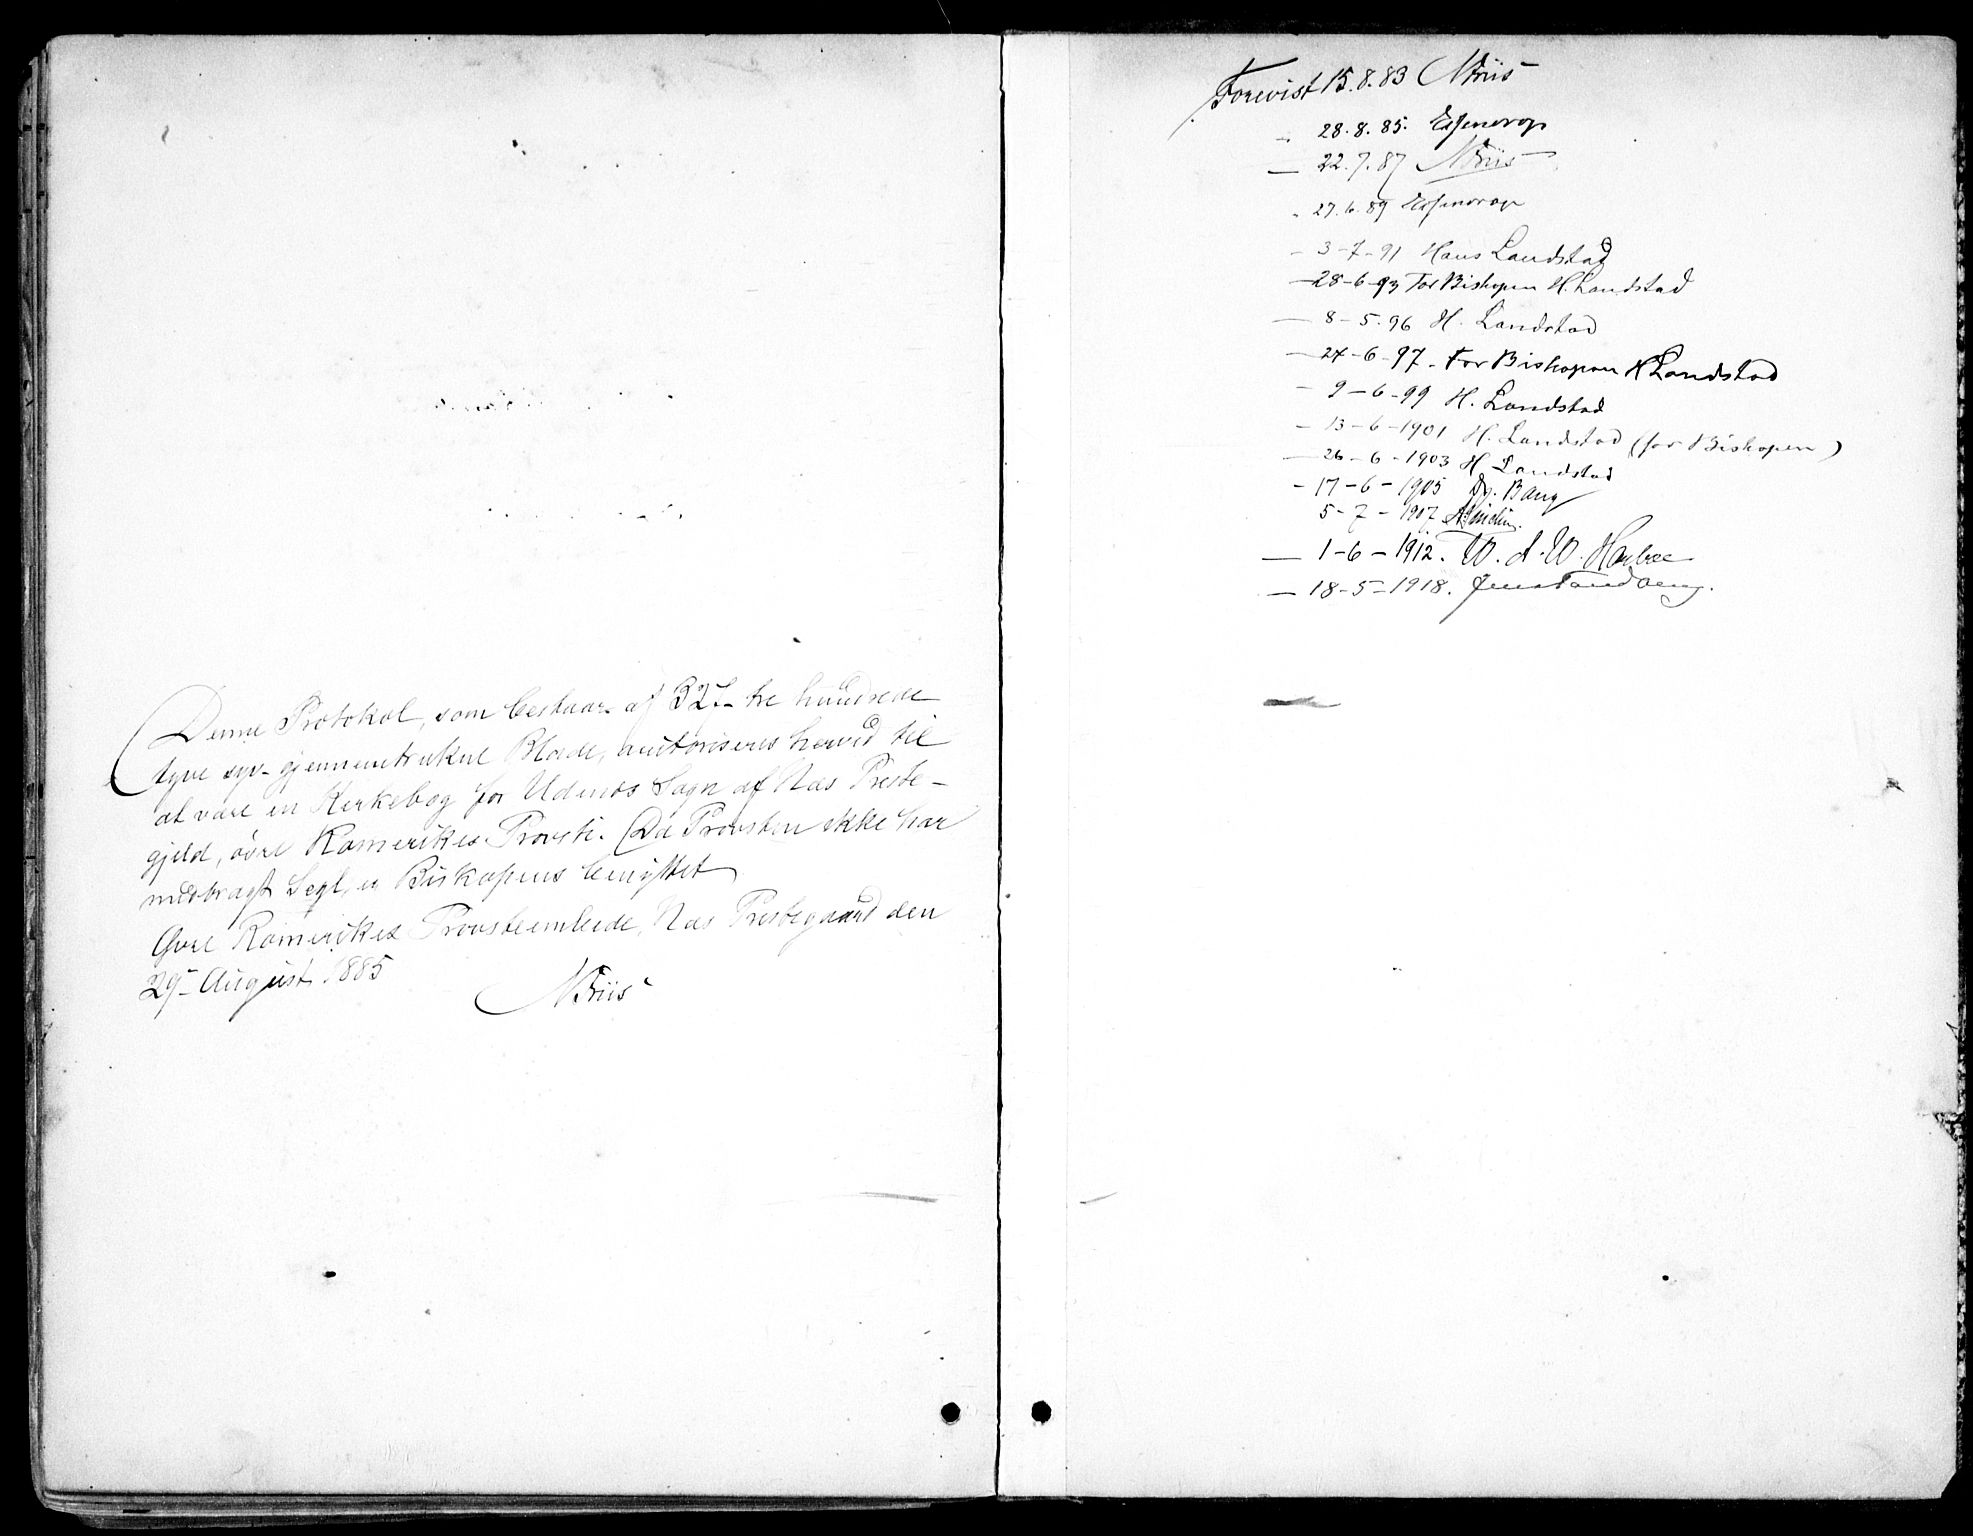 Denne Protokol, som bestaar af 327 - tre hundrede
tyve syv - gjennemtrukne Blade, autoriseres herved til
at være en Kirkebog for Udenes Sogn af Næs Preste-
gjeld, øvre Romerikes Provsti. (Da Provsten ikke har
medbragt Segl, er Biskopens benyttet
Øvre Romerikes Provsteembede, Næs Prestegaard den
29 - August 1885
NRiis
Forevist 15.8.83 NRiis
" 28.8.85. Essendrop
— 22.7.87 NRiis
" 27.6.89 Essendrop
- 3-7-91 Hans Landstad
— 28-6-93 For Biskopen H. Landstad
— 8-5-96 H. Landstad
— 24-6-97. For Biskopen H Landstad
- 9-6-99 H. Landstad
- 13-6-1901 H. Landstad (for Biskopen)
— 26-6-1903 H Landstad
- 17-6-1905 Bang
5-7-1907
— 1-6-1912. W. A. W. Harboe
— 18-5-1918. Jens Tandberg.